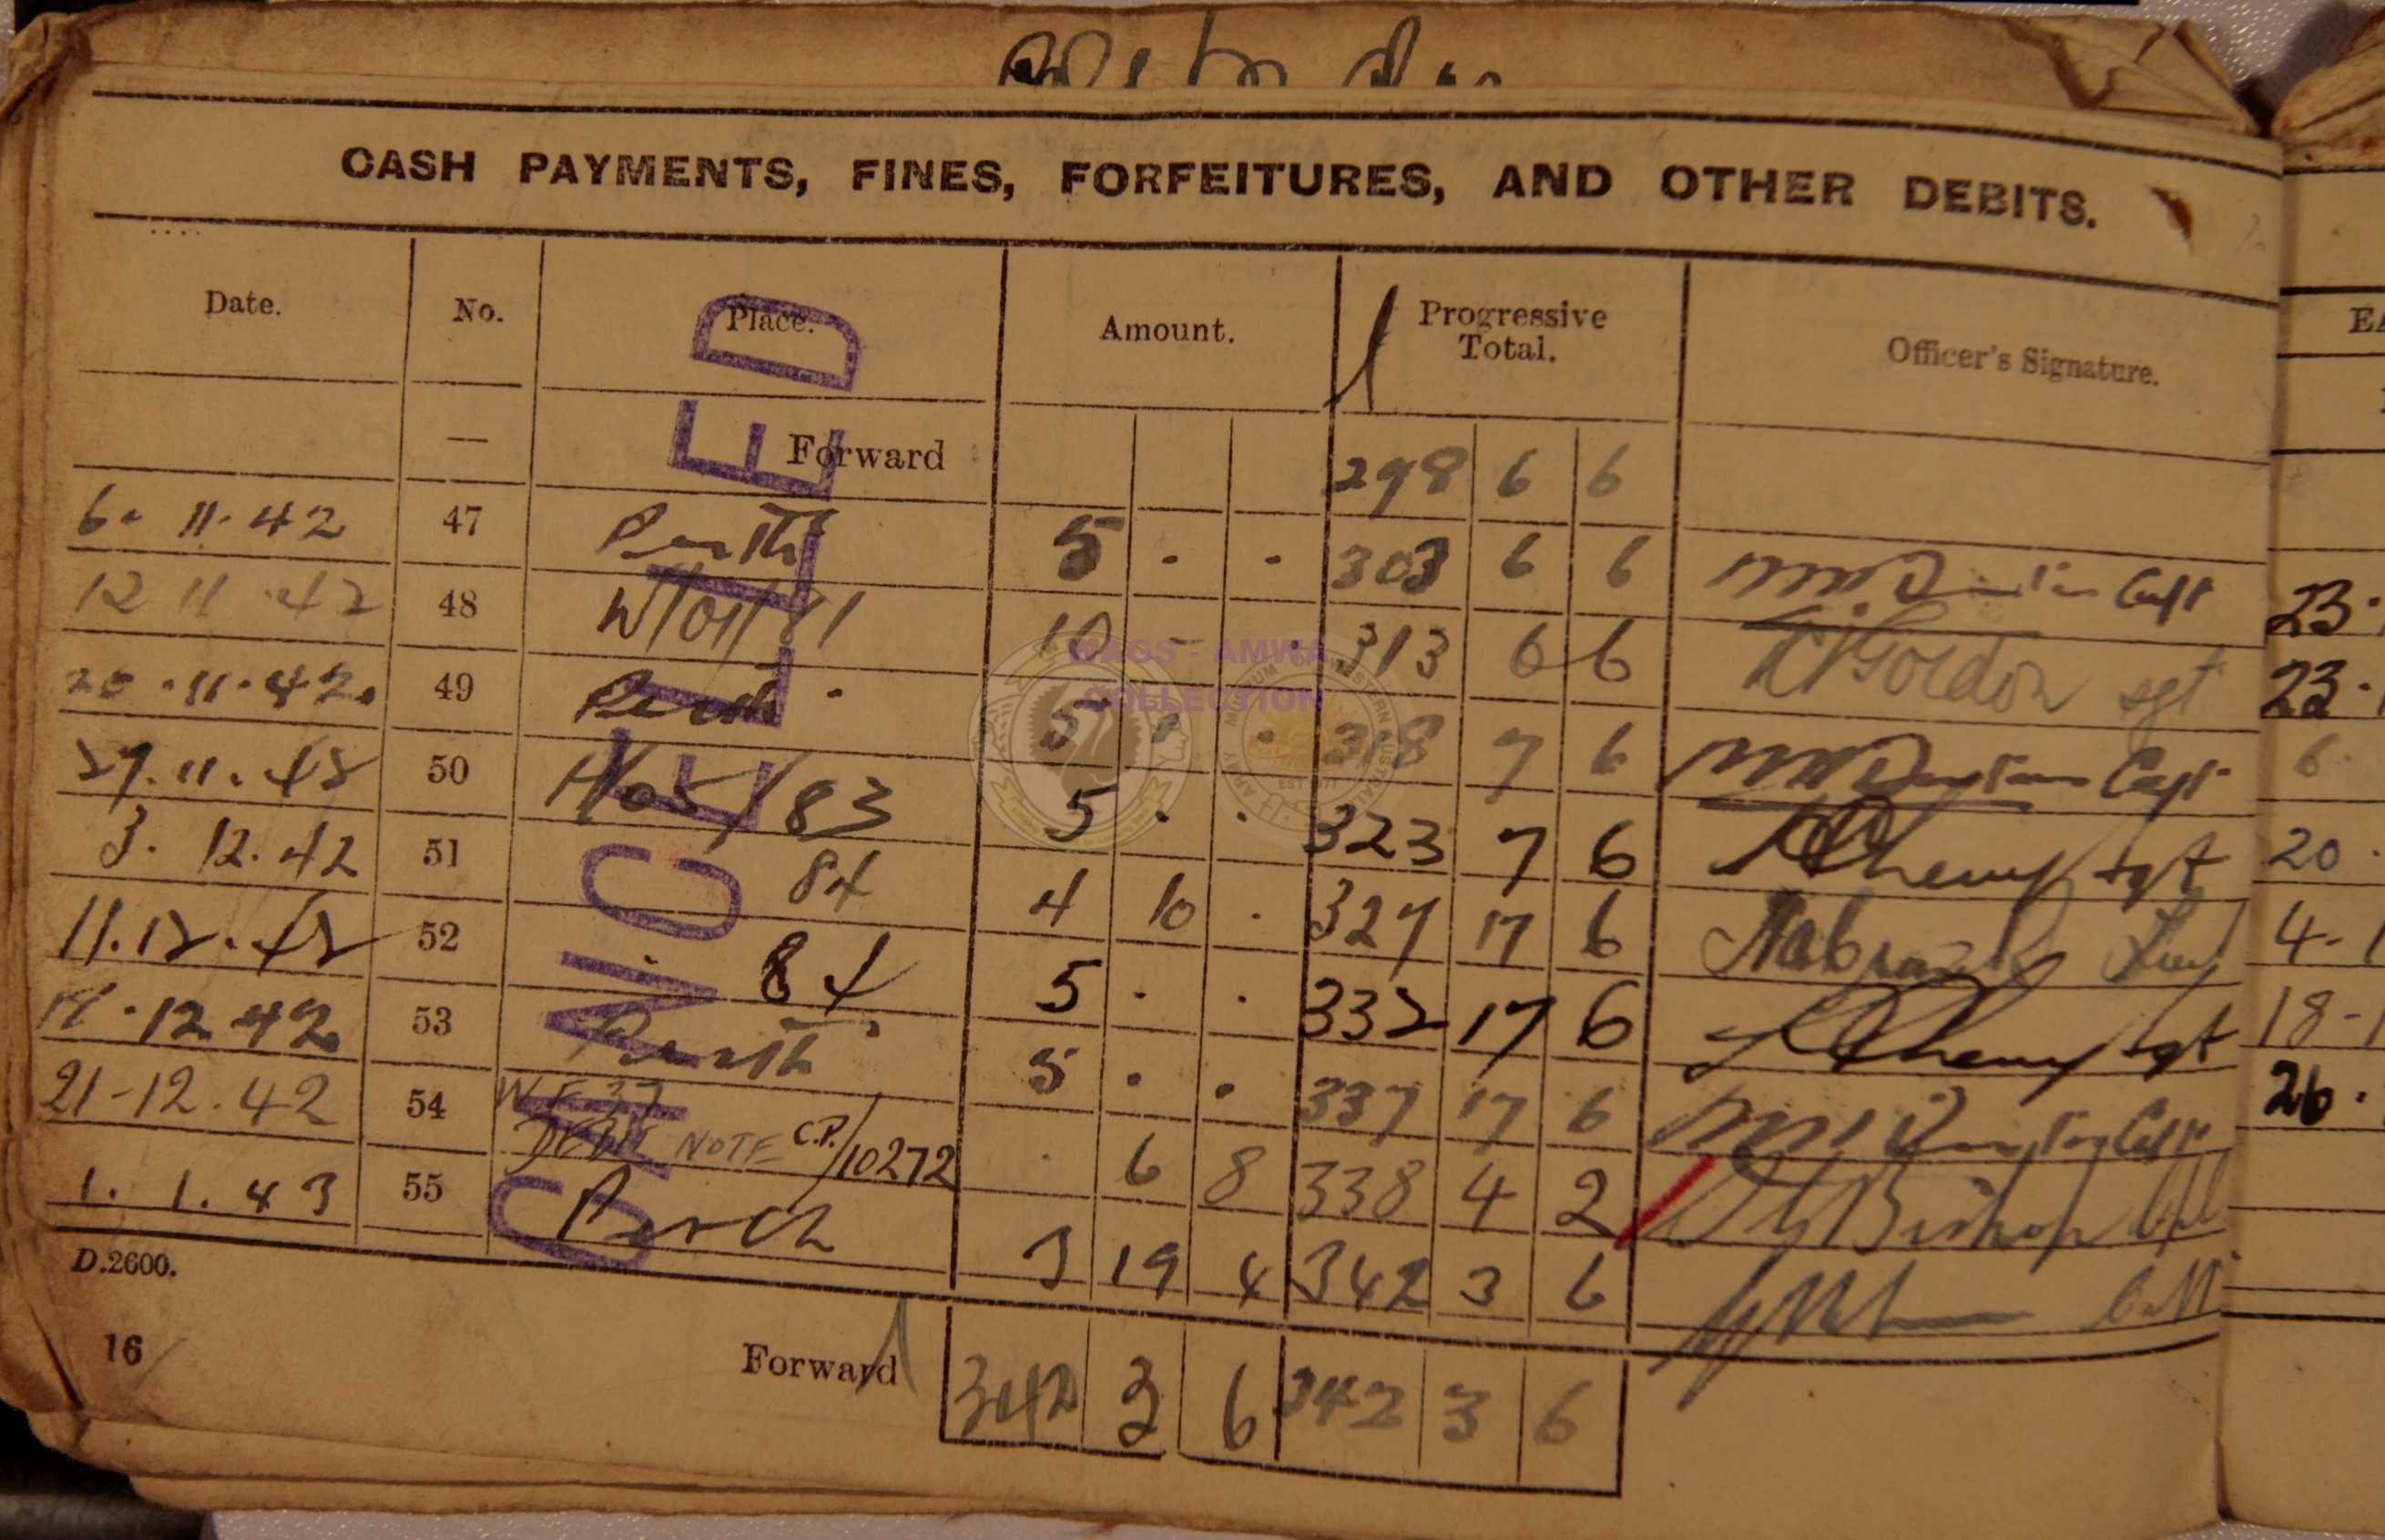 CASH PAYMENTS, FINES, FORFEITURES, AND OTHER DEBITS.
Date. No. Place. Amount. Progressive Total. Officer's Signature.
— Forward 298 6 6
6. 11. 42 47 Perth 5 . . 303 6 6 Capt
12 11 .42 48 10 - . 313 6 6 Gordon sgt
20 .11. 42. 49 Perth . 5 . . 318 7 6 Capt
27. 11. 42 50 83 5 . . 323 7 6 sgt
3. 12. 42 51 84 4 10 . 327 17 6
11. 12. 42 52 84 5 . . 332 17 6 sgt
.12 42 53 Perth 5 . . 337 17 6 Capt
21-12. 42 54 DEBIT NOTE C.P./10272 . 6 8 338 4 2 Bishop
1. 1. 43 55 Perth 3 19 4 342 3 6
D.2600.
16 Forward 342 3 6 342 3 6
CANCELLED
WAGS - AMWA
COLLECTION
EA
23.
23.
6.
20.
4-1
18-1
26.